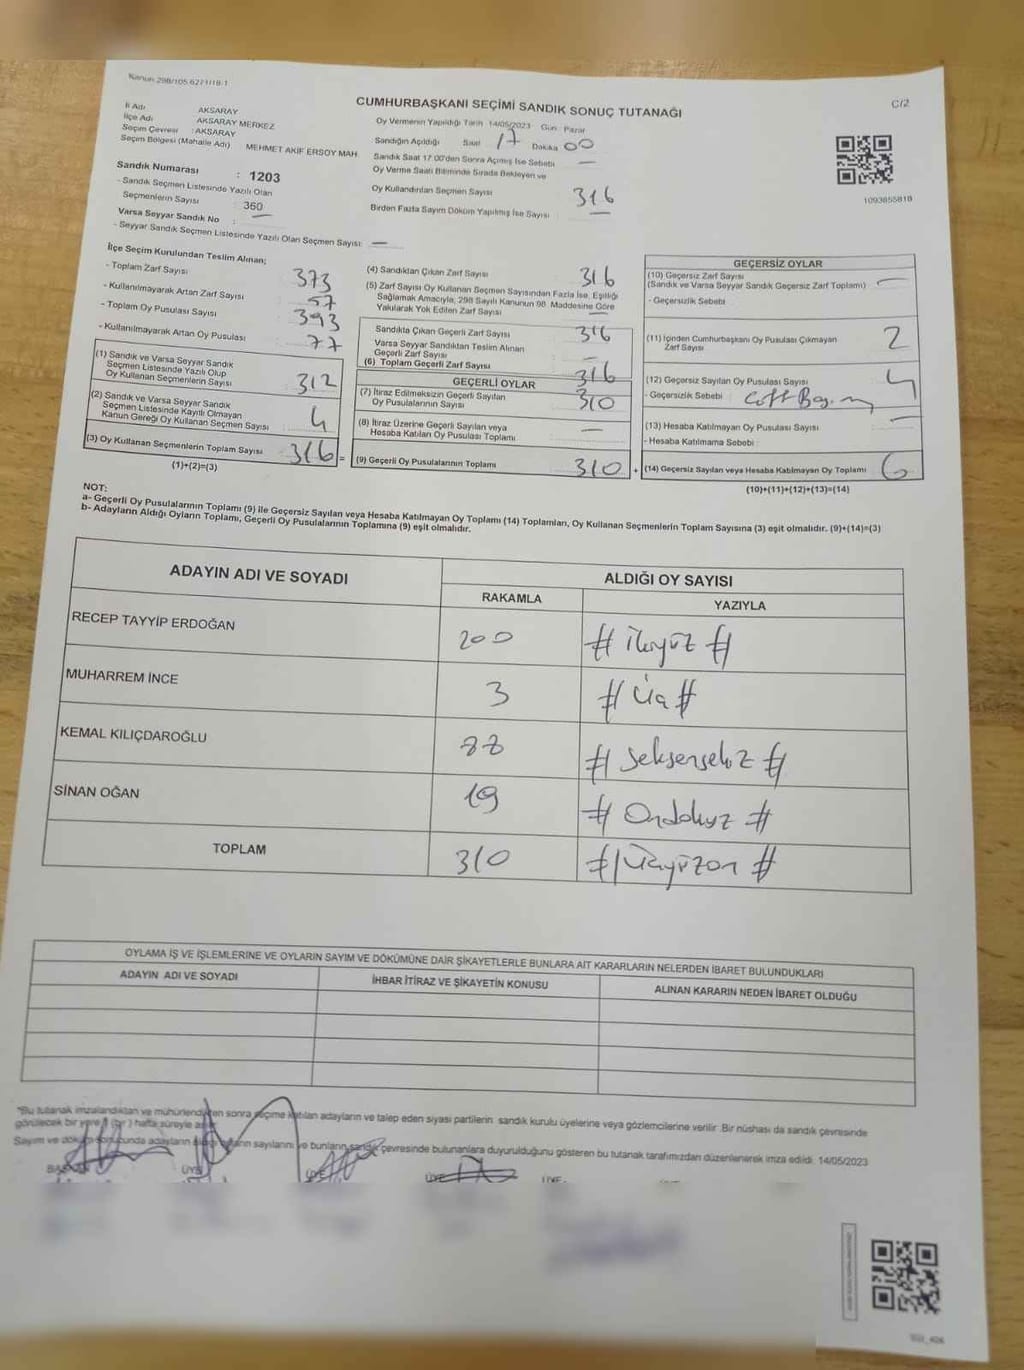 Kanun 298/105 6271/18-1
CUMHURBAŞKANI SEÇİMİ SANDIK SONUÇ TUTANAĞI
C/2
İl Adı AKSARAY
İlçe Adı AKSARAY MERKEZ
Seçim Çevresi : AKSARAY
Seçim Bölgesi (Mahalle Adı) MEHMET AKİF ERSOY MAH.
Oy Vermenin Yapıldığı Tarih 14/05/2023 Gün Pazar
Sandığın Açıldığı Saat 17 Dakika 00
Sandık Saat 17:00'den Sonra Açılmış İse Sebebi —
Oy Verme Saati Bitiminde Sırada Bekleyen ve
Oy Kullandırılan Seçmen Sayısı 316
Birden Fazla Sayım Döküm Yapılmış İse Sayısı —
1093855818
Sandık Numarası : 1203
- Sandık Seçmen Listesinde Yazılı Olan
Seçmenlerin Sayısı 360
Varsa Seyyar Sandık No : —
- Seyyar Sandık Seçmen Listesinde Yazılı Olan Seçmen Sayısı: —
İlçe Seçim Kurulundan Teslim Alınan;
- Toplam Zarf Sayısı 373
- Kullanılmayarak Artan Zarf Sayısı 57
- Toplam Oy Pusulası Sayısı 393
- Kullanılmayarak Artan Oy Pusulası 77
(1) Sandık ve Varsa Seyyar Sandık
Seçmen Listesinde Yazılı Olup
Oy Kullanan Seçmenlerin Sayısı 312
(2) Sandık ve Varsa Seyyar Sandık
Seçmen Listesinde Kayıtlı Olmayan
Kanun Gereği Oy Kullanan Seçmen Sayısı 4
(3) Oy Kullanan Seçmenlerin Toplam Sayısı 316 =
(1)+(2)=(3)
(4) Sandıktan Çıkan Zarf Sayısı 316
(5) Zarf Sayısı Oy Kullanan Seçmen Sayısından Fazla İse, Eşitliği
Sağlamak Amacıyla, 298 Sayılı Kanunun 98. Maddesine Göre
Yakılarak Yok Edilen Zarf Sayısı —
Sandıkta Çıkan Geçerli Zarf Sayısı 316
Varsa Seyyar Sandıktan Teslim Alınan
Geçerli Zarf Sayısı —
(6) Toplam Geçerli Zarf Sayısı 316
GEÇERLİ OYLAR
(7) İtiraz Edilmeksizin Geçerli Sayılan
Oy Pusulalarının Sayısı 310
(8) İtiraz Üzerine Geçerli Sayılan veya
Hesaba Katılan Oy Pusulası Toplamı —
(9) Geçerli Oy Pusulalarının Toplamı 310 +
GEÇERSİZ OYLAR
(10) Geçersiz Zarf Sayısı
(Sandık ve Varsa Seyyar Sandık Geçersiz Zarf Toplamı) —
- Geçersizlik Sebebi :
(11) İçinden Cumhurbaşkanı Oy Pusulası Çıkmayan
Zarf Sayısı 2
(12) Geçersiz Sayılan Oy Pusulası Sayısı 4
- Geçersizlik Sebebi :
(13) Hesaba Katılmayan Oy Pusulası Sayısı —
- Hesaba Katılmama Sebebi :
(14) Geçersiz Sayılan veya Hesaba Katılmayan Oy Toplamı 6
(10)+(11)+(12)+(13)=(14)
NOT:
a- Geçerli Oy Pusulalarının Toplamı (9) ile Geçersiz Sayılan veya Hesaba Katılmayan Oy Toplamı (14) Toplamları, Oy Kullanan Seçmenlerin Toplam Sayısına (3) eşit olmalıdır. (9)+(14)=(3)
b- Adayların Aldığı Oyların Toplamı, Geçerli Oy Pusulalarının Toplamına (9) eşit olmalıdır.
ADAYIN ADI VE SOYADI ALDIĞI OY SAYISI
RAKAMLA YAZIYLA
RECEP TAYYİP ERDOĞAN 200 # İkiyüz #
MUHARREM İNCE 3 # Üç #
KEMAL KILIÇDAROĞLU 88 # Seksensekiz #
SİNAN OĞAN 19 # Ondokuz #
TOPLAM 310 # Üçyüzon #
OYLAMA İŞ VE İŞLEMLERİNE VE OYLARIN SAYIM VE DÖKÜMÜNE DAİR ŞİKAYETLERLE BUNLARA AİT KARARLARIN NELERDEN İBARET BULUNDUKLARI
ADAYIN ADI VE SOYADI İHBAR İTİRAZ VE ŞİKAYETİN KONUSU ALINAN KARARIN NEDEN İBARET OLDUĞU
*Bu tutanak imzalandıktan ve mühürlendikten sonra seçime katılan adayların ve talep eden siyasi partilerin sandık kurulu üyelerine veya gözlemcilerine verilir. Bir nüshası da sandık çevresinde
görülecek bir yere 1 (bir) hafta süreyle asılır.
Sayım ve döküm sonucunda adayların aldığı oyların sayılarını ve bunların sandık çevresinde bulunanlara duyurulduğunu gösteren bu tutanak tarafımızdan düzenlenerek imza edildi. 14/05/2023
BAŞKAN ÜYE ÜYE ÜYE ÜYE